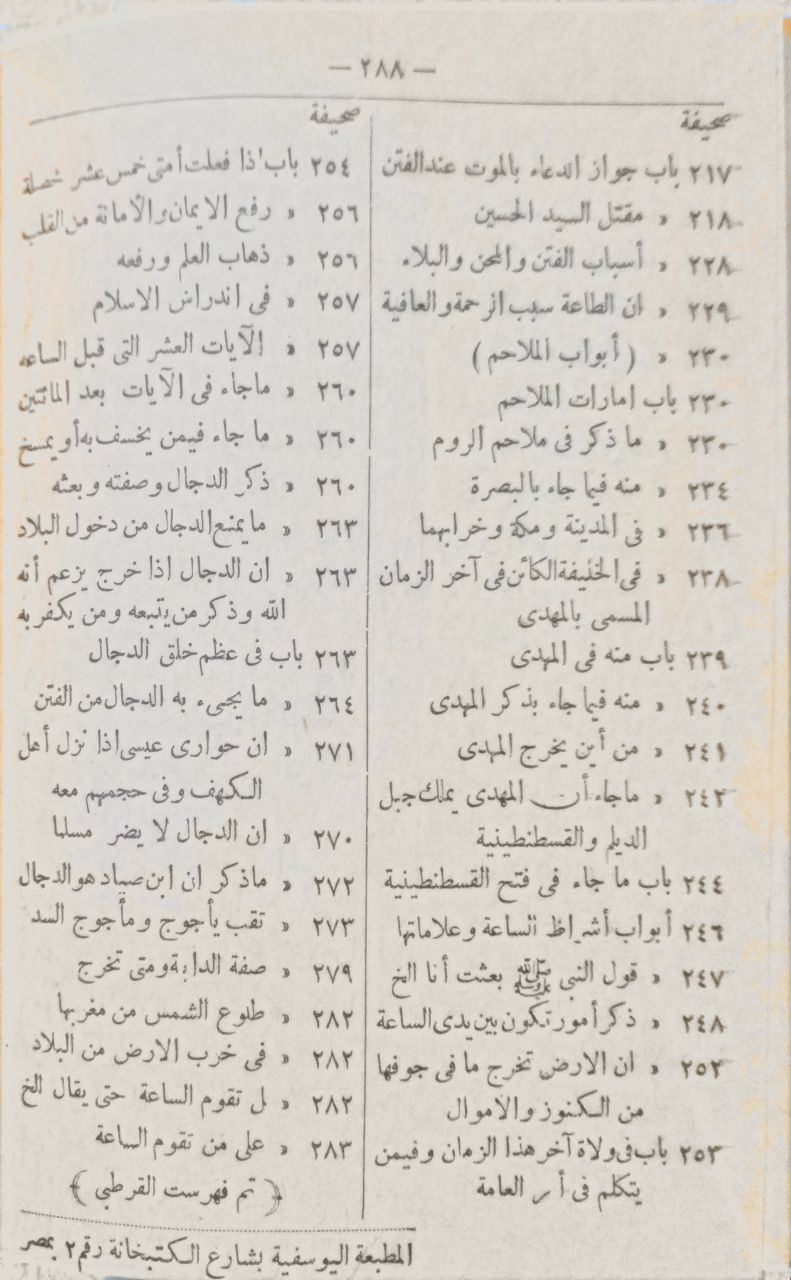 — ٢٨٨ —
صحيفة
٢١٧ باب جواز الدعاء بالموت عند الفتن
٢١٨ » مقتل السيد الحسين
٢٢٨ » أسباب الفتن والمحن والبلاء
٢٢٩ » ان الطاعة سبب الرحمة والعافية
٢٣٠ » ( أبواب الملاحم )
٢٣٠ باب امارات الملاحم
٢٣٠ » ما ذكر فى ملاحم الروم
٢٣٤ » منه فيما جاء بالبصرة
٢٣٦ » فى المدينة ومكة وخرابهما
٢٣٨ » فى الخليفة الكائن فى آخر الزمان
المسمى بالمهدى
٢٣٩ باب منه فى المهدى
٢٤٠ » منه فيما جاء بذكر المهدى
٢٤١ » من أين يخرج المهدى
٢٤٢ » ماجاء أن المهدى يملك جبل
الديلم والقسطنطينية
٢٤٤ باب ما جاء فى فتح القسطنطينية
٢٤٦ أبواب أشراط الساعة وعلاماتها
٢٤٧ » قول النبى ﷺ بعثت أنا الخ
٢٤٨ » ذكر أمور تكون بين يدى الساعة
٢٥٢ » ان الارض تخرج ما فى جوفها
من الكنوز والاموال
٢٥٣ باب فى ولاة آخر هذا الزمان وفيمن
يتكلم فى أمر العامة
صحيفة
٢٥٤ باب اذا فعلت أمتى خمس عشر خصلة
٢٥٦ » رفع الايمان والأمانة من القلب
٢٥٦ » ذهاب العلم ورفعه
٢٥٧ » فى اندراس الاسلام
٢٥٧ » الآيات العشر التى قبل الساعه
٢٦٠ » ماجاء فى الآيات بعد المائتين
٢٦٠ » ما جاء فيمن يخسف به أو يمسخ
٢٦٠ » ذكر الدجال وصفته وبعثه
٢٦٣ » ما يمنع الدجال من دخول البلاد
٢٦٣ » ان الدجال اذا خرج يزعم أنه
الله وذكر من يتبعه ومن يكفر به
٢٦٣ باب فى عظم خلق الدجال
٢٦٤ » ما يجىء به الدجال من الفتن
٢٧١ » ان حوارى عيسى اذا نزل أهل
الكهف وفى حجهم معه
٢٧٠ » ان الدجال لا يضر مسلما
٢٧٢ » ماذكر ان ابن صياد هو الدجال
٢٧٣ » نقب يأجوج ومأجوج السد
٢٧٩ » صفة الدابة ومتى تخرج
٢٨٢ » طلوع الشمس من مغربها
٢٨٢ » فى خرب الارض من البلاد
٢٨٢ » ل تقوم الساعة حتى يقال الخ
٢٨٣ » على من تقوم الساعة
﴿ تم فهرست القرطبى ﴾
المطبعة اليوسفية بشارع الكتبخانة رقم ٢ بمصر